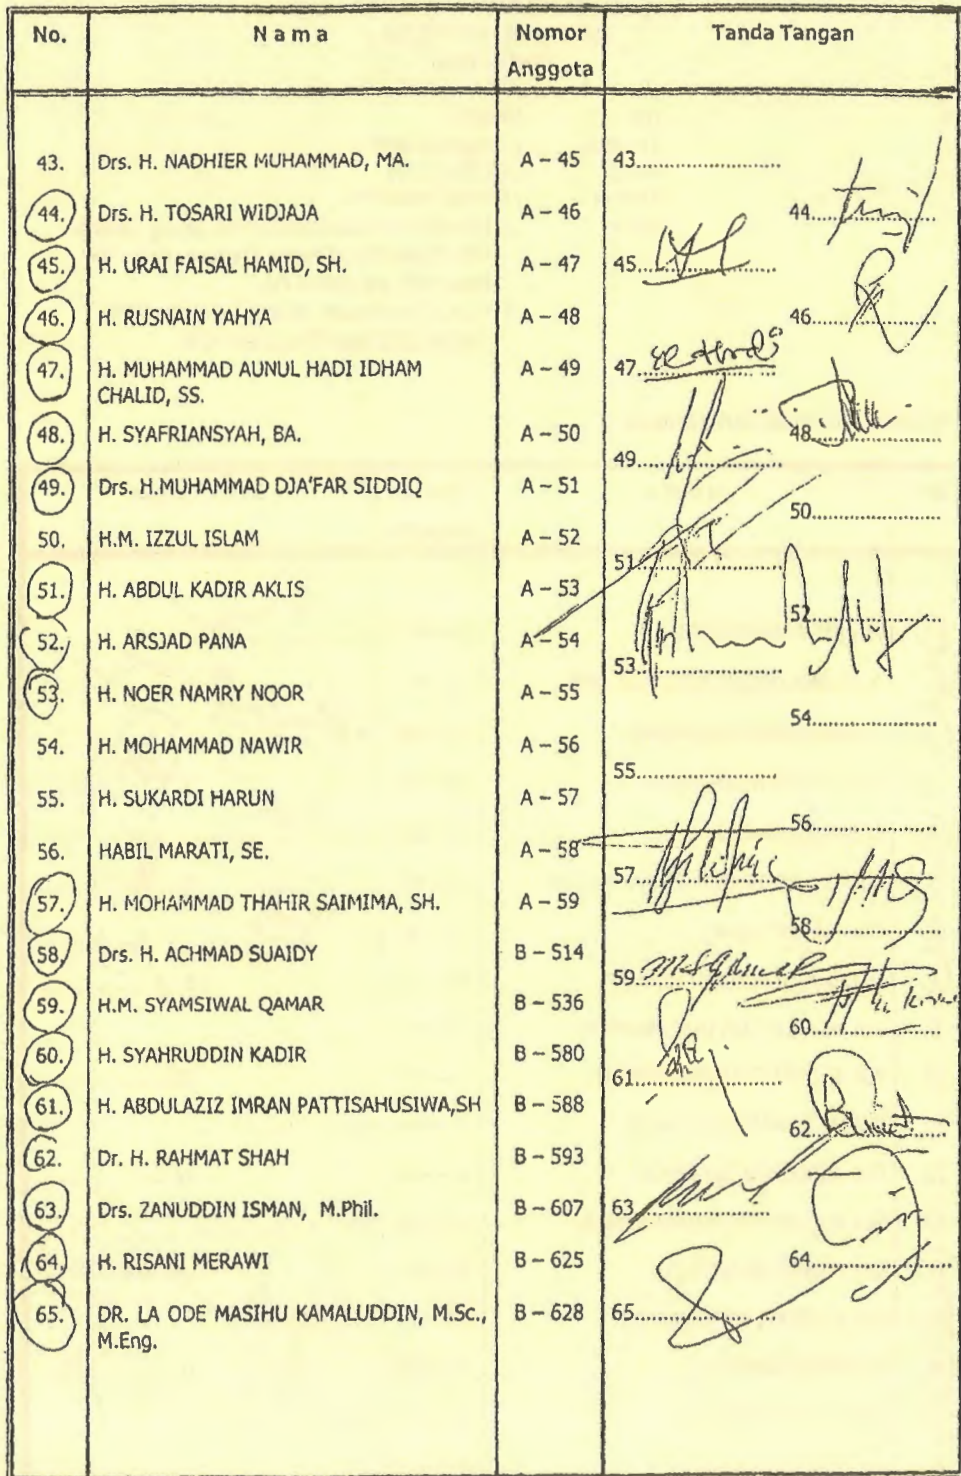 No. Nama Nomor Anggota Tanda Tangan
43. Drs. H. NADHIER MUHAMMAD, MA. A – 45 43........................
44. Drs. H. TOSARI WIDJAJA A – 46 44..................
45. H. URAI FAISAL HAMID, SH. A – 47 45....................
46. H. RUSNAIN YAHYA A – 48 46..................
47. H. MUHAMMAD AUNUL HADI IDHAM A – 49 47....................
CHALID, SS.
48. H. SYAFRIANSYAH, BA. A – 50 48..................
49. Drs. H.MUHAMMAD DJA'FAR SIDDIQ A – 51 49....................
50. H.M. IZZUL ISLAM A – 52 50..................
51. H. ABDUL KADIR AKLIS A – 53 51....................
52. H. ARSJAD PANA A – 54 52..................
53. H. NOER NAMRY NOOR A – 55 53....................
54. H. MOHAMMAD NAWIR A – 56 54..................
55. H. SUKARDI HARUN A – 57 55....................
56. HABIL MARATI, SE. A – 58 56..................
57. H. MOHAMMAD THAHIR SAIMIMA, SH. A – 59 57....................
58. Drs. H. ACHMAD SUAIDY B – 514 58..................
59. H.M. SYAMSIWAL QAMAR B – 536 59....................
60. H. SYAHRUDDIN KADIR B – 580 60..................
61. H. ABDULAZIZ IMRAN PATTISAHUSIWA,SH B – 588 61....................
62. Dr. H. RAHMAT SHAH B – 593 62..................
63. Drs. ZANUDDIN ISMAN, M.Phil. B – 607 63....................
64. H. RISANI MERAWI B – 625 64..................
65. DR. LA ODE MASIHU KAMALUDDIN, M.Sc., B – 628 65....................
M.Eng.